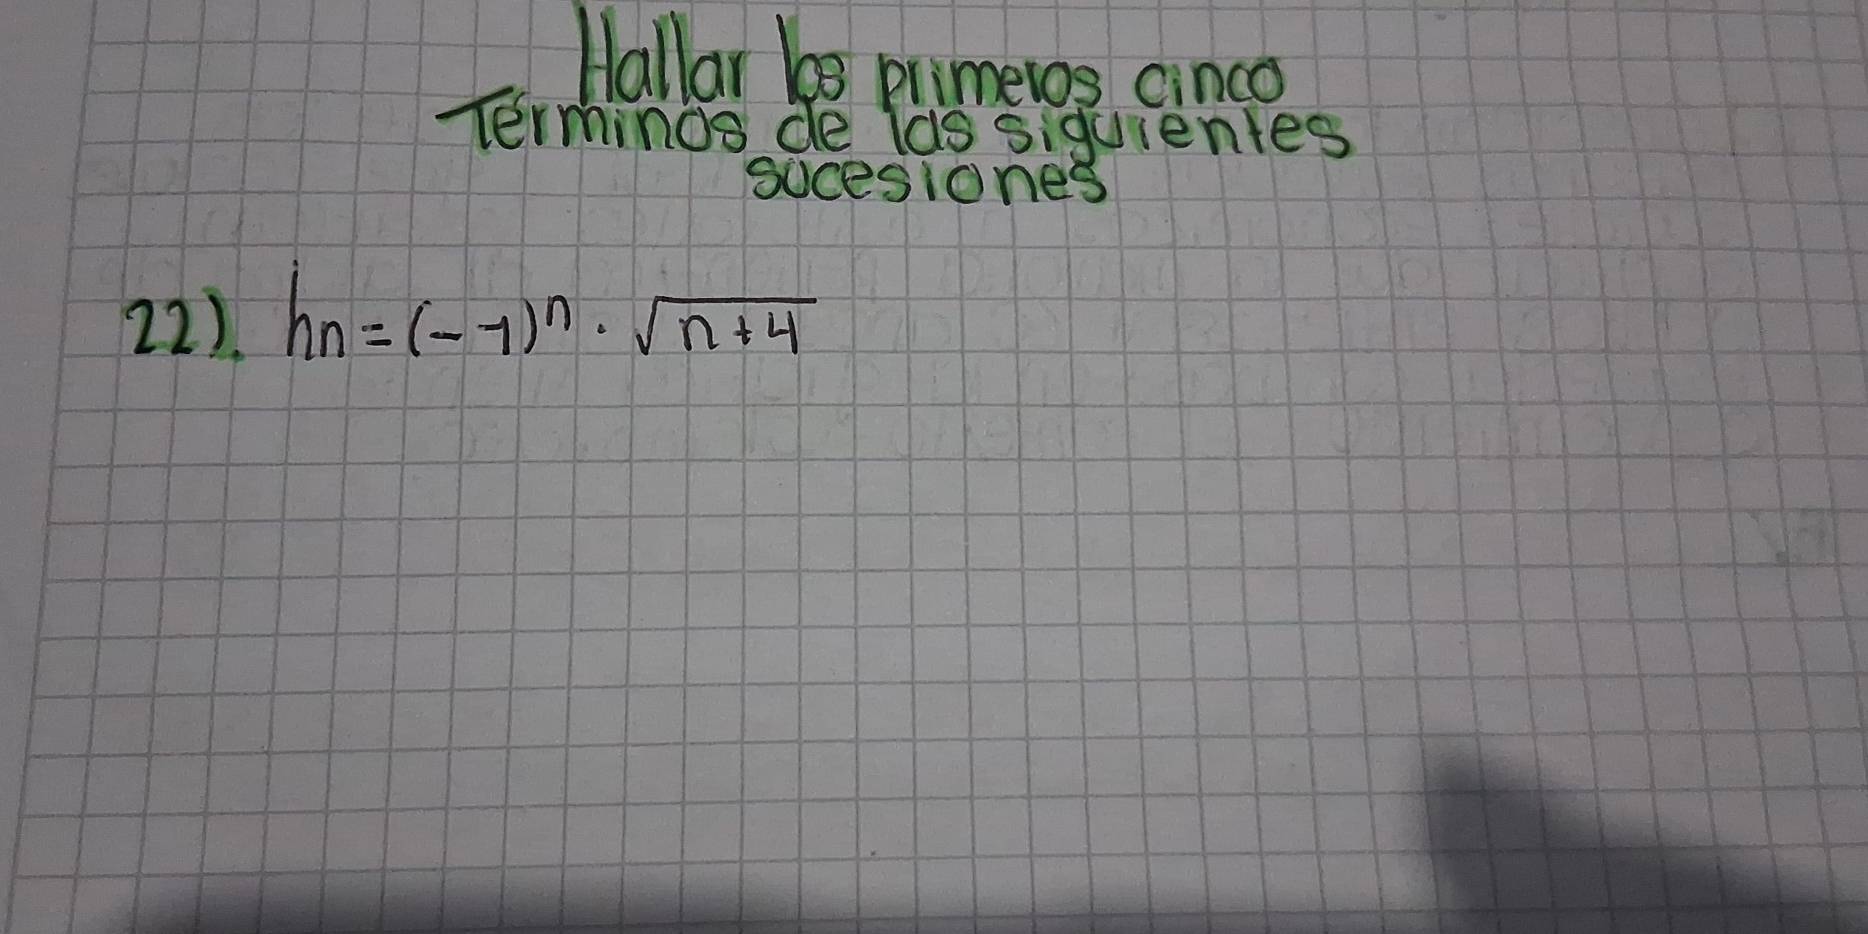 Hallar los primeros cinco
Términos de las siguientes
sucesiones
22). hn = (-1)ⁿ · √n+4